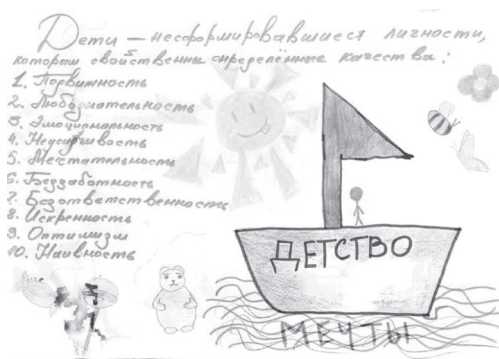 Дети — несформировавшиеся личности,
которым свойственны определённые качества:
1. Подвижность
2. Любознательность
3. Эмоциональность
4. Неусидчивость
5. Мечтательность
6. Беззаботность
7. Безответственность
8. Искренность
9. Оптимизм
10. Наивность
ДЕТСТВО
МЕЧТЫ